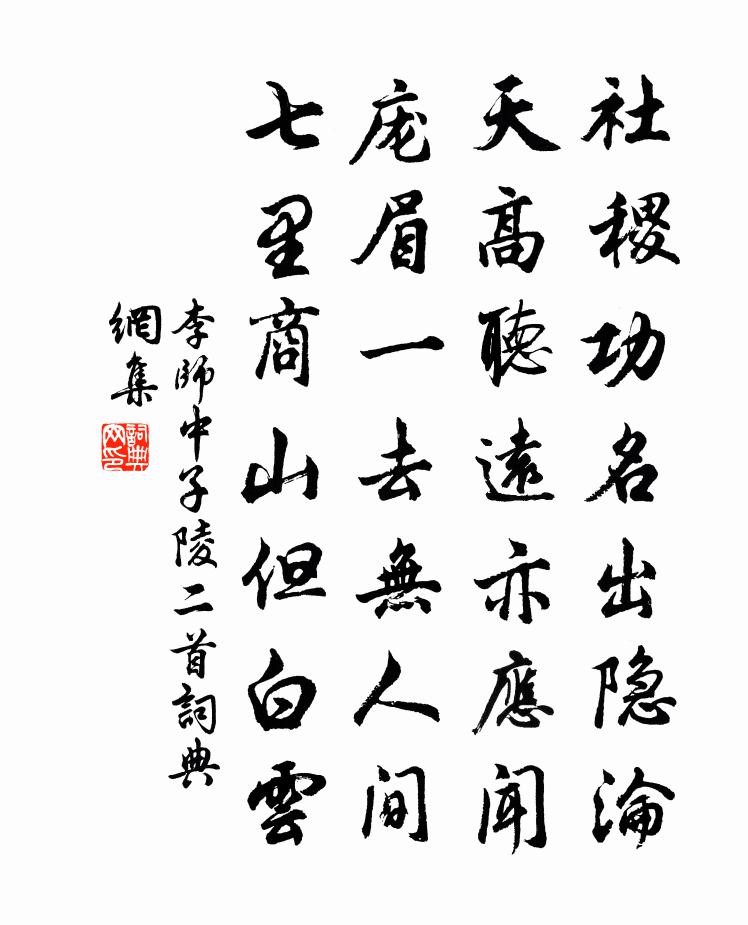 社稷功名出隐淪
天高聽遠亦應聞
庬眉一去無人間
七里商山但白雲
李師中子陵二首詞典
網集
詞典
网印